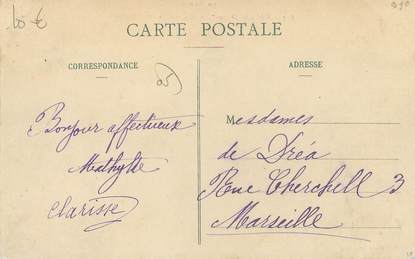 10 €
CARTE POSTALE
CORRESPONDANCE
ADRESSE
Bonjour affectueux
Mathylde
Clarisse
Mesdames
de Dréa
Rue Cherchell 3
Marseille